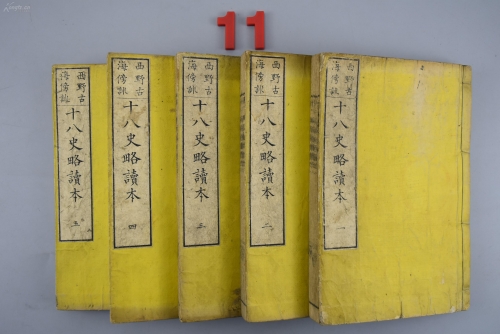 11
西野古
海傍訓
十八史略讀本
一
西野古
海傍訓
十八史略讀本
二
西野古
海傍訓
十八史略讀本
三
西野古
海傍訓
十八史略讀本
四
西野古
海傍訓
十八史略讀本
五